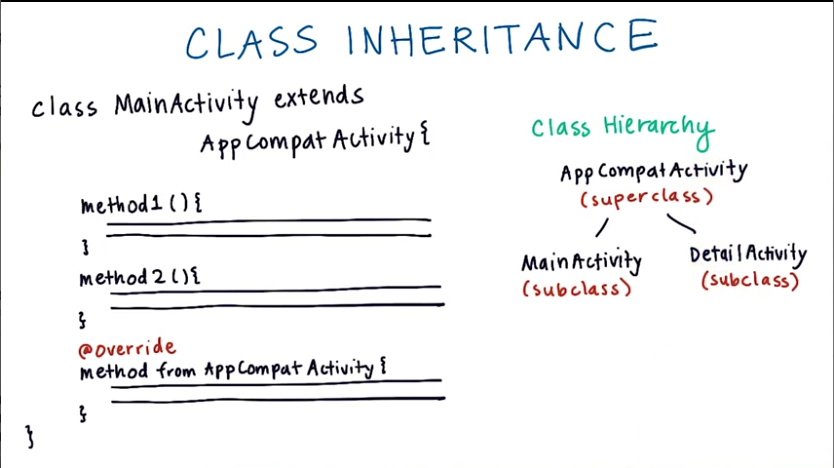 CLASS INHERITANCE
class MainActivity extends
AppCompatActivity {
method1 () {
}
method 2 () {
}
@Override
method from AppCompatActivity {
}
}
Class Hierarchy
AppCompatActivity
(superclass)
MainActivity
(subclass)
DetailActivity
(subclass)